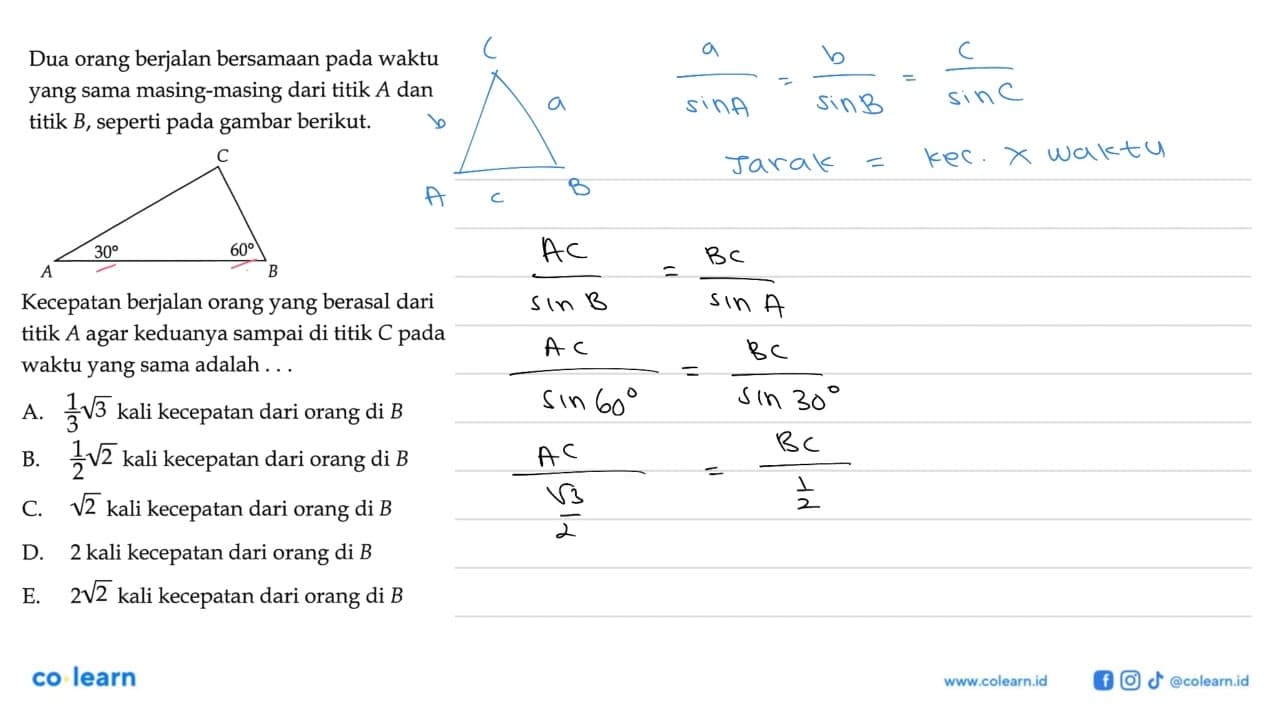 Dua orang berjalan bersamaan pada waktu
yang sama masing-masing dari titik A dan
titik B, seperti pada gambar berikut.
C
30°
60°
A
B
Kecepatan berjalan orang yang berasal dari
titik A agar keduanya sampai di titik C pada
waktu yang sama adalah . . .
A. 1/3√3 kali kecepatan dari orang di B
B. 1/2√2 kali kecepatan dari orang di B
C. √2 kali kecepatan dari orang di B
D. 2 kali kecepatan dari orang di B
E. 2√2 kali kecepatan dari orang di B
C
b
a
A
c
B
a/sinA = b/sinB = c/sinC
Jarak = kec. x waktu
AC/sin B = BC/sin A
AC/sin 60° = BC/sin 30°
AC/(√3/2) = BC/(1/2)
co learn
www.colearn.id
@colearn.id